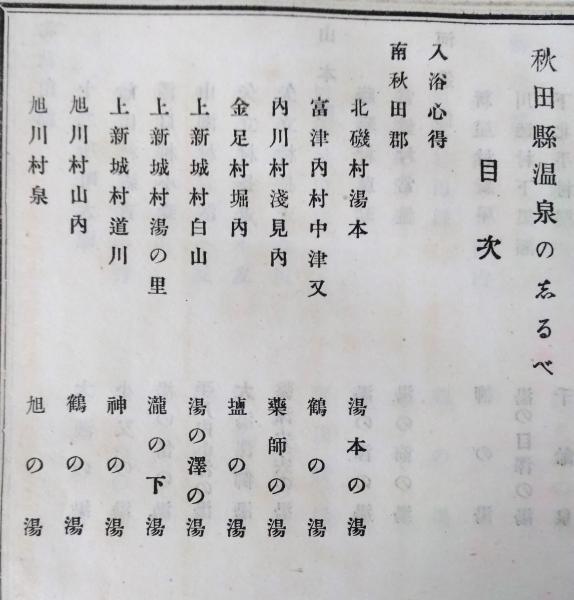 秋田縣温泉のしるべ
目次
入浴心得
南秋田郡
北磯村湯本 湯本の湯
富津内村中津又 鶴の湯
内川村淺見内 藥師の湯
金足村堀内 塩の湯
上新城村白山 湯の澤の湯
上新城村湯の里 瀧の下湯
上新城村道川 神の湯
旭川村山内 鶴の湯
旭川村泉 旭の湯